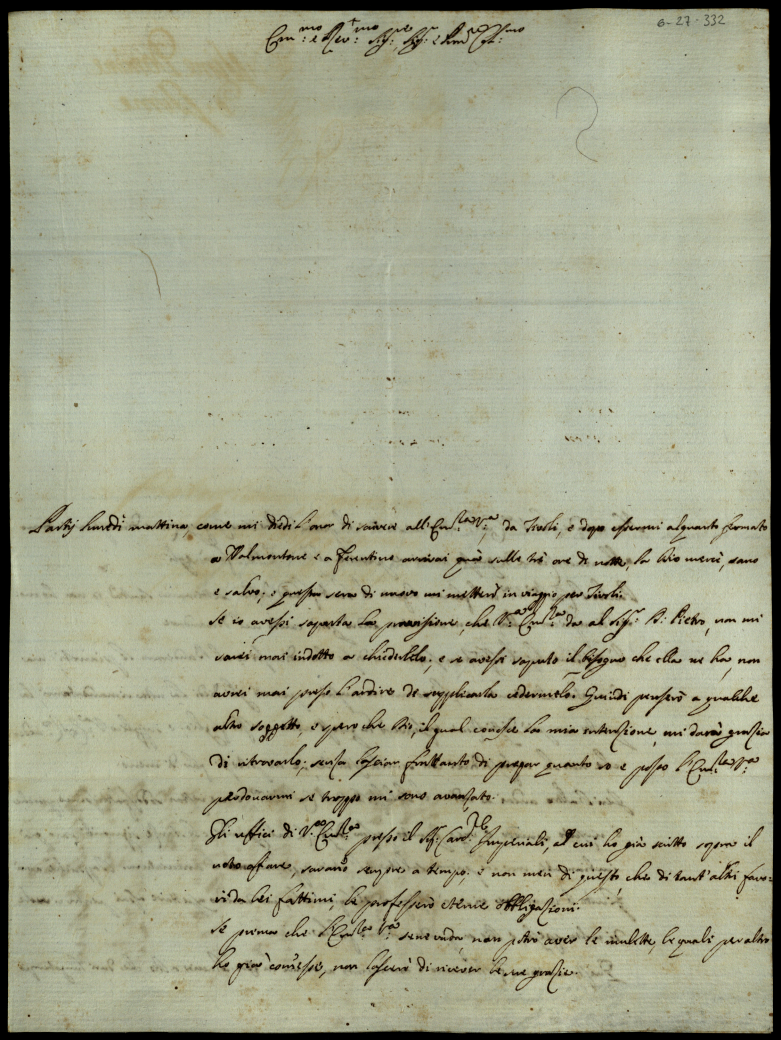 6-27-332
Em.mo e Rev.mo Sig.re Sig.r e Pad.ne Col.mo
Partij lunedì mattina, come mi diedi l'onor di scrivere all'Em.za V.ra da Tivoli, e dopo essermi alquanto fermato
a Valmontone e a Ferentino arrivai quà sulle trè ore di notte, la Dio mercè, sano
e salvo; e questa sera di nuovo mi metterò in viaggio per Tivoli.
Se io avessi saputa la provisione, che V.ra Em.za dà al Sig.r D. Pietro, non mi
sarei mai indotto a chiederlelo; e se avessi saputo il bisogno che ella ne ha, non
avrei mai preso l'ardire de supplicarla cedermelo. Quindi penserò a qualche
altro soggetto, e spero che Dio, il qual conosce la mia intenzione, mi darà grazia
di ritrovarlo; senza lasciar frattanto di pregar quanto so e posso l'Em.za V.ra
perdonarmi se troppo mi sono avanzato.
Gli uffici di V.ra Em.za presso il Sig. Card.le Imperiali, al cui ho già scritto sopra il
noto affare, saranno sempre a tempo: e non men di questo, che di tant'altri favo-
ri da lei fattimi le professerò eterne obbligazioni.
Se prima che l'Em.za V.ra sene vada, non potrò aver le mulette, le quali per altro
ho già com̃esse, non lascerò di ricever le sue grazie.